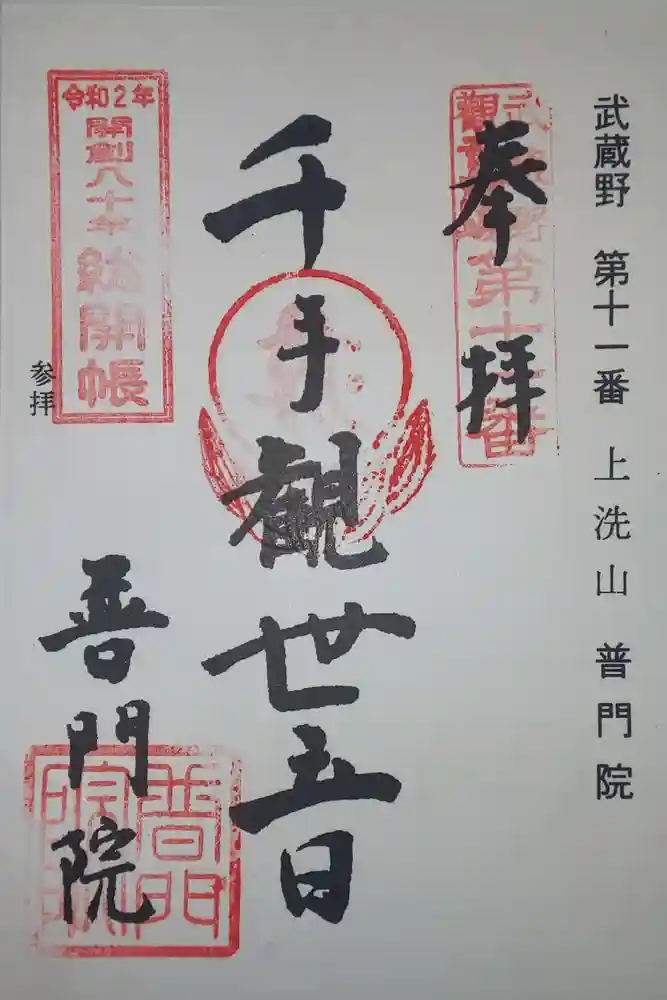 武蔵野 第十一番 上洗山 普門院
奉拝
武蔵野
観音霊場
第十一番
千手観世音
普門院
普門
院印
令和2年
開創八十年
総開帳
参拝